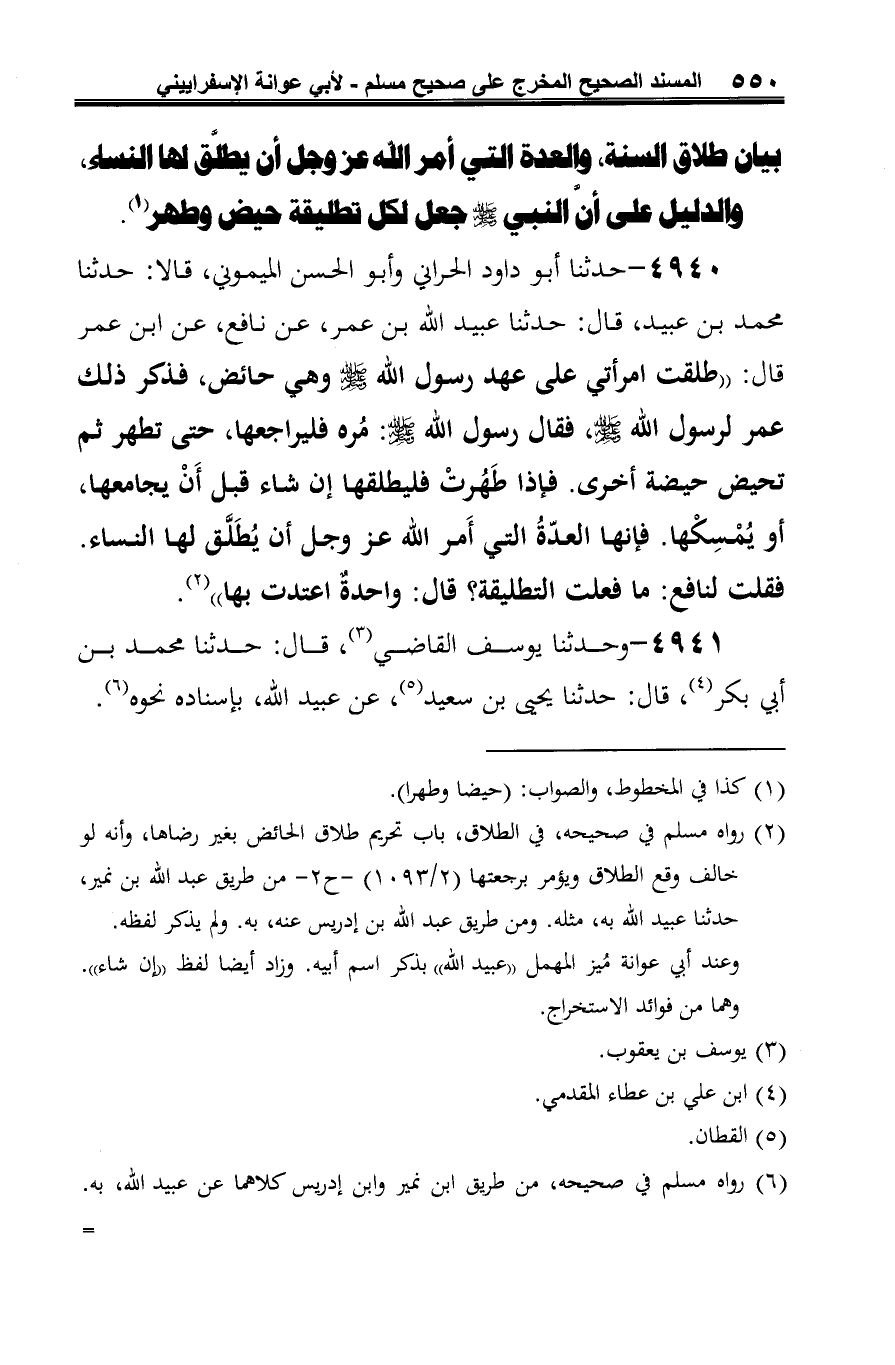 ٥٥٠ المسند الصحيح المخرج على صحيح مسلم - لأبي عوانة الإسفراييني
بيان طلاق السنة، والعدة التي أمر الله عز وجل أن يطلَّق لها النساء،
والدليل على أنَّ النبي ﷺ جعل لكل تطليقة حيض وطهر(١).
٤٩٤٠-حدثنا أبو داود الحراني وأبو الحسن الميموني، قالا: حدثنا
محمد بن عبيد، قال: حدثنا عبيد الله بن عمر، عن نافع، عن ابن عمر
قال: ((طلقت امرأتي على عهد رسول الله ﷺ وهي حائض، فذكر ذلك
عمر لرسول الله ﷺ، فقال رسول الله ﷺ: مُره فليراجعها، حتى تطهر ثم
تحيض حيضة أخرى. فإذا طَهُرتْ فليطلقها إن شاء قبل أَنْ يجامعها،
أو يُمْسِكْها. فإنها العدّةُ التي أَمر الله عز وجل أن يُطَلَّق لها النساء.
فقلت لنافع: ما فعلت التطليقة؟ قال: واحدةٌ اعتدت بها))(٢).
٤٩٤١-وحدثنا يوسف القاضي(٣)، قال: حدثنا محمد بن
أبي بكر(٤)، قال: حدثنا يحيى بن سعيد(٥)، عن عبيد الله، بإسناده نحوه(٦).
(١) كذا في المخطوط، والصواب: (حيضا وطهرا).
(٢) رواه مسلم في صحيحه، في الطلاق، باب تحريم طلاق الحائض بغير رضاها، وأنه لو
خالف وقع الطلاق ويؤمر برجعتها (١٠٩٣/٢) -ح٢- من طريق عبد الله بن نمير،
حدثنا عبيد الله به، مثله. ومن طريق عبد الله بن إدريس عنه، به. ولم يذكر لفظه.
وعند أبي عوانة مُيز المهمل ((عبيد الله)) بذكر اسم أبيه. وزاد أيضا لفظ ((إن شاء)).
وهما من فوائد الاستخراج.
(٣) يوسف بن يعقوب.
(٤) ابن علي بن عطاء المقدمي.
(٥) القطان.
(٦) رواه مسلم في صحيحه، من طريق ابن نمير وابن إدريس كلاهما عن عبيد الله، به.
=